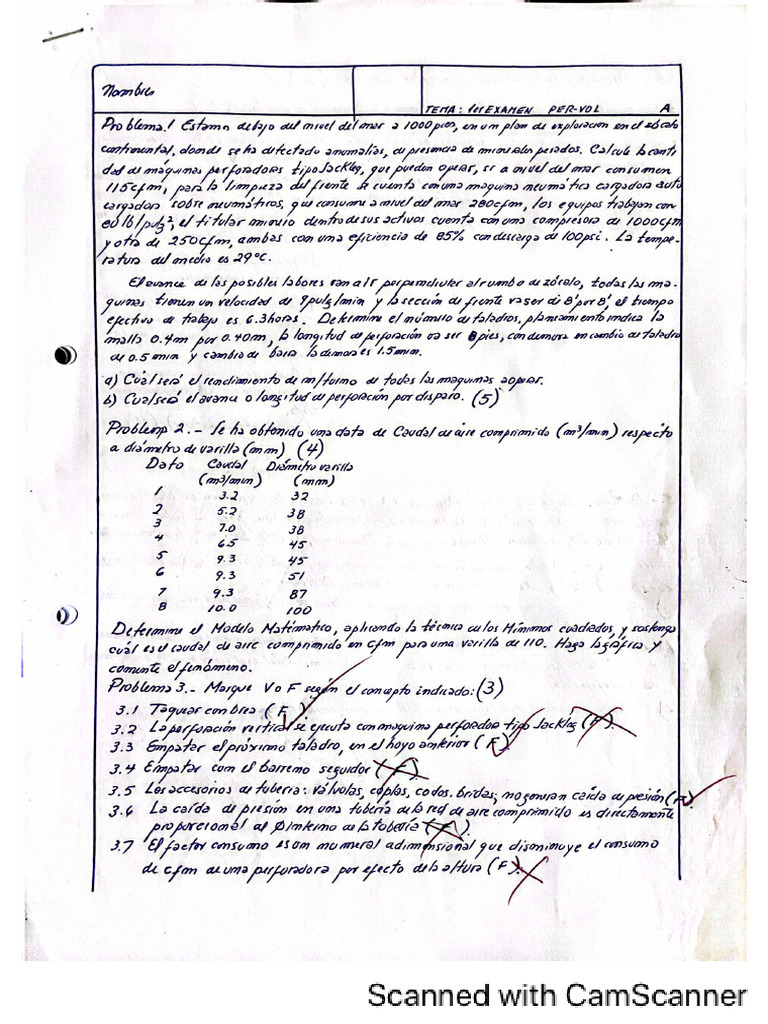 Nombre
TEMA: 1er EXAMEN PER-VOL A
Problema.1 Estamo debajo del nivel del mar a 1000 pies, en un plan de exploracion en el zócalo
continental, donde se ha detectado anomalías, de presencia de minerales pesados. Calcule la canti
dad de maquinas perforadoras tipo Jackleg, que pueden operar, si a nivel del mar consumen
115cfm, para la limpieza del frente se cuenta con una maquina neumática cargadora auto
cargadora sobre neumáticos, que consume a nivel del mar 280cfm, los equipos trabajan con
80 lb/pulg², el titular minero dentro de sus activos cuenta con una compresora de 1000cfm
y otra de 250cfm, ambas con una eficiencia de 85% con descarga de 100psi. La tempe-
ratura del medio es 29°C.
El avance de las posibles labores van a ir perpendicular al rumbo de zócalo, todas las ma-
quinas tienen un velocidad de 9pulg/min y la sección de frente va ser de 8' por 8', el tiempo
efectivo de trabajo es 6.3 horas. Determine el número de taladros, planeamiento indica la
malla 0.4m por 0.40m, la longitud de perforación va ser 8 pies, con demora en cambio de taladro
de 0.5 min y cambio de barra la demora es 1.5 min.
a) Cuál será el rendimiento de m/turno de todas las maquinas a operar.
b) Cual será el avance o longitud de perforación por disparo. (5)
Problema 2.- Se ha obtenido una data de Caudal de aire comprimido (m³/min) respecto
a diámetro de varilla (mm) (4)
Dato Caudal Diámetro varilla
(m³/min) (mm)
1 3.2 32
2 5.2 38
3 7.0 38
4 6.5 45
5 9.3 45
6 9.3 51
7 9.3 87
8 10.0 100
Determine el Modelo Matemático, aplicando la técnica de los Mínimos cuadrados, y sostenga
cuál es el caudal de aire comprimido en cfm para una varilla de 110. Haga la gráfica y
comente el fenómeno.
Problema 3.- Marque V o F según el concepto indicado: (3)
3.1 Taquear con brea (F).
3.2 La perforación vertical se ejecuta con maquina perforador tipo Jackleg (F).
3.3 Empatar el próximo taladro, en el hoyo anterior (F)
3.4 Empatar com el barreno seguidor (F)
3.5 Los accesorios de tuberia: válvulas, coplas, codos, bridas; no generan caída de presión (F)
3.6 La caída de presión en una tubería de la red de aire comprimido es directamente
proporcional al Ø interno de la tubería (F).
3.7 El factor consumo es un numeral adimensional que disminuye el consumo
de cfm de una perforadora por efecto de la altura (F).
Scanned with CamScanner